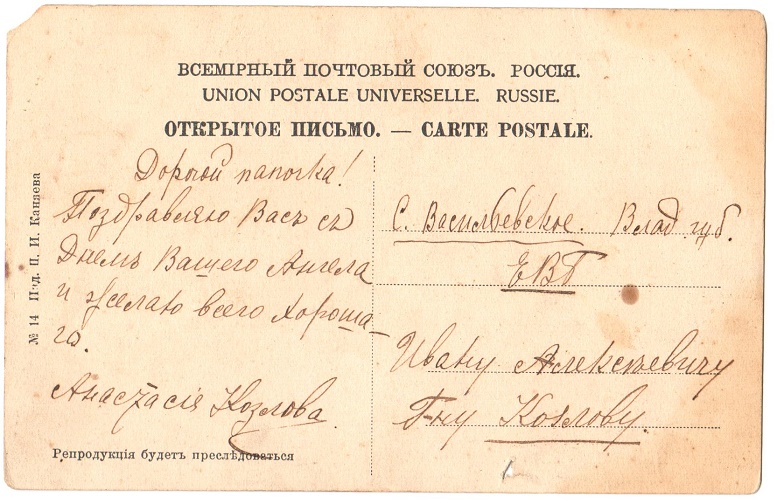 ВСЕМІРНЫЙ ПОЧТОВЫЙ СОЮЗЪ. РОССІЯ.
UNION POSTALE UNIVERSELLE. RUSSIE.
ОТКРЫТОЕ ПИСЬМО. — CARTE POSTALE.
Дорогой папочка!
Поздравляю Васъ съ
Днемъ Вашего Ангела
и желаю всего хороша-
го.
Анастасія Козлова.
С. Васильевское. Влад. губ.
ЕВБ
Ивану Алексѣевичу
Г-ну Козлову.
№ 14 Изд. П. И. Канаева
Репродукція будетъ преслѣдоваться